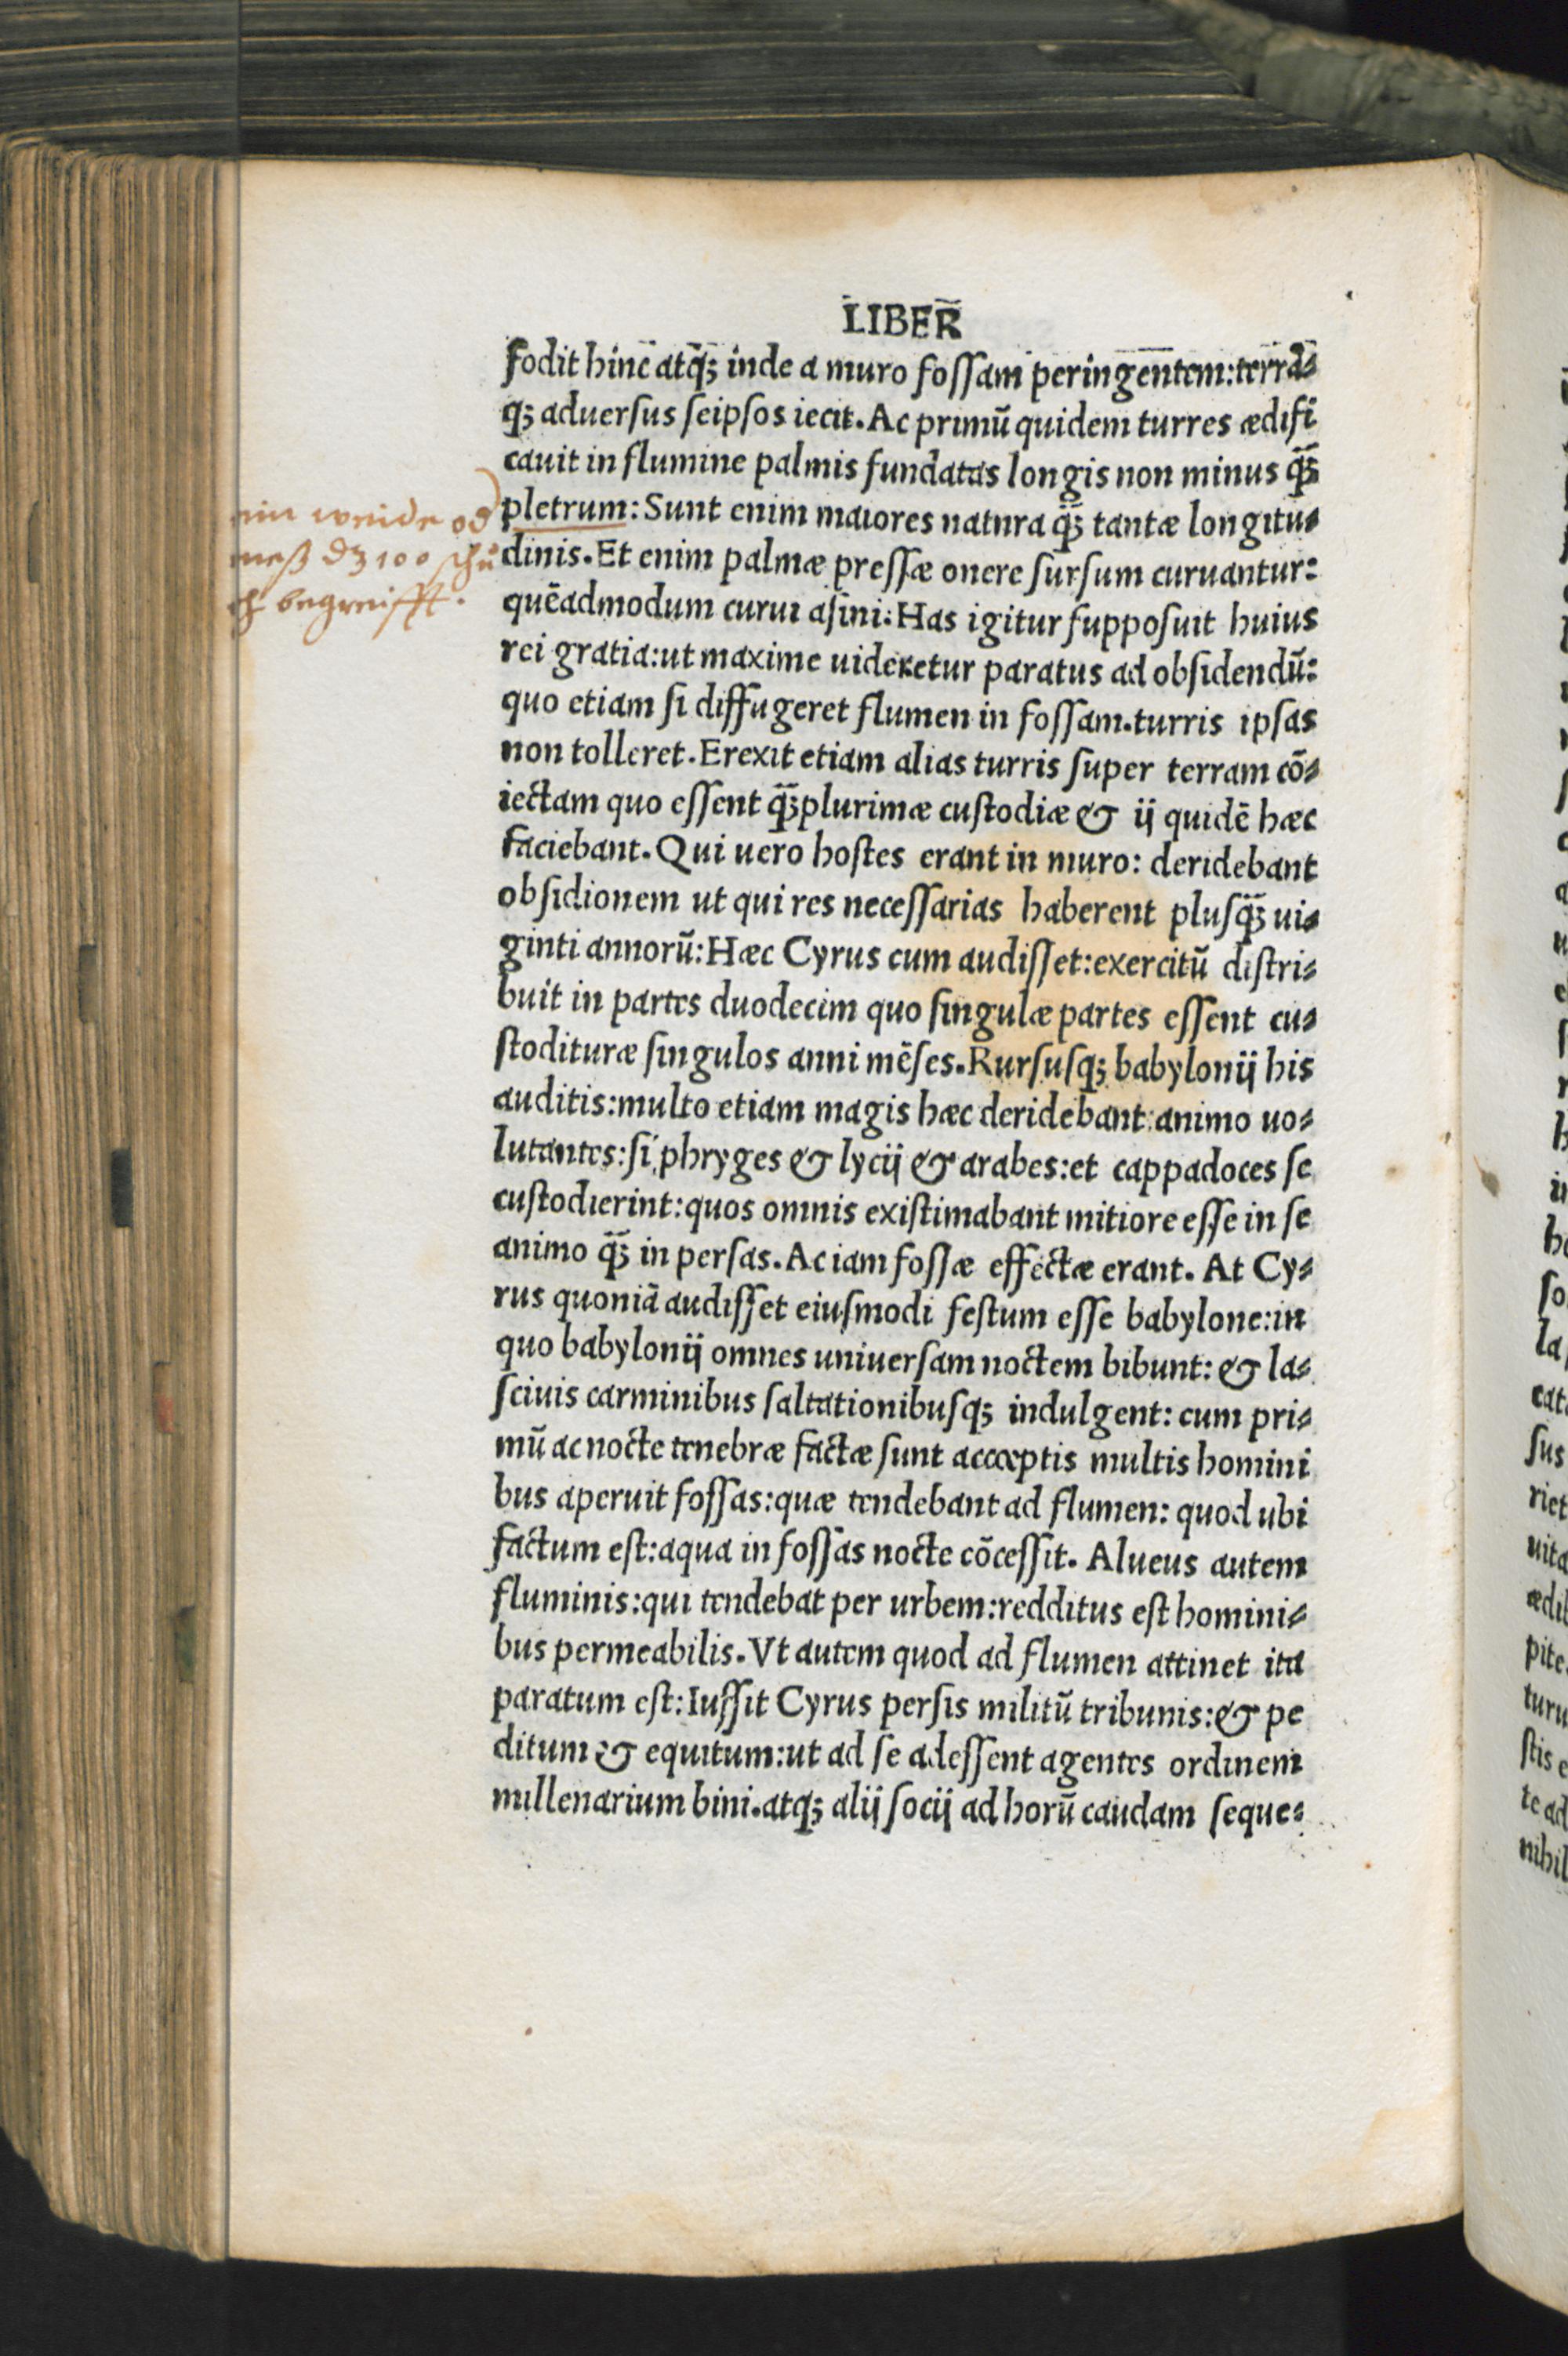 LIBER
fodit hinc atq; inde a muro foſſam peringentem:terra⸗
q; aduerſus ſeipſos iecit. Ac primũ quidem turres ædifi
cauit in flumine palmis fundatas longis non minus q̃ꝫ
pletrum: Sunt enim maiores natura q̃ꝫ tantæ longitu⸗
dinis. Et enim palmæ preſſæ onere ſurſum curuantur:
quẽadmodum curui aſini: Has igitur ſuppoſuit huius
rei gratia:ut maxime uideretur paratus ad obſidendũ:
quo etiam ſi diffugeret flumen in foſſam.turris ipſas
non tolleret. Erexit etiam alias turris ſuper terram cõ⸗
iectam quo eſſent q̃ꝫplurimæ cuſtodiæ & ij quidẽ hæc
faciebant. Qui uero hoſtes erant in muro: deridebant
obſidionem ut qui res neceſſarias haberent pluſq̃ꝫ ui⸗
ginti annorũ: Hæc Cyrus cum audiſſet:exercitũ diſtri⸗
buit in partes duodecim quo ſingulæ partes eſſent cu⸗
ſtodituræ ſingulos anni mẽſes. Rurſuſq; babylonij his
auditis:multo etiam magis hæc deridebant:animo uo⸗
lutantes:ſi phryges & lycij & arabes:et cappadoces ſe
cuſtodierint:quos omnis exiſtimabant mitiore eſſe in ſe
animo q̃ꝫ in perſas. Ac iam foſſæ effectæ erant. At Cy⸗
rus quoniã audiſſet eiuſmodi feſtum eſſe babylone:in
quo babylonij omnes uniuerſam noctem bibunt: & la⸗
ſciuis carminibus ſaltationibuſq; indulgent: cum pri⸗
mũ ac nocte tenebræ factæ ſunt acceptis multis homini
bus aperuit foſſas:quæ tendebant ad flumen: quod ubi
factum eſt:aqua in foſſas nocte cõceſſit. Alueus autem
fluminis:qui tendebat per urbem:redditus eſt homini⸗
bus permeabilis. Vt autem quod ad flumen attinet ita
paratum eſt: Iuſſit Cyrus perſis militũ tribunis:& pe
ditum & equitum:ut ad ſe adeſſent agentes ordinem
millenarium bini.atq; alij ſocij ad horũ caudam ſeque⸗
ein weide od
meß dz 100 schů
ch begreifft.